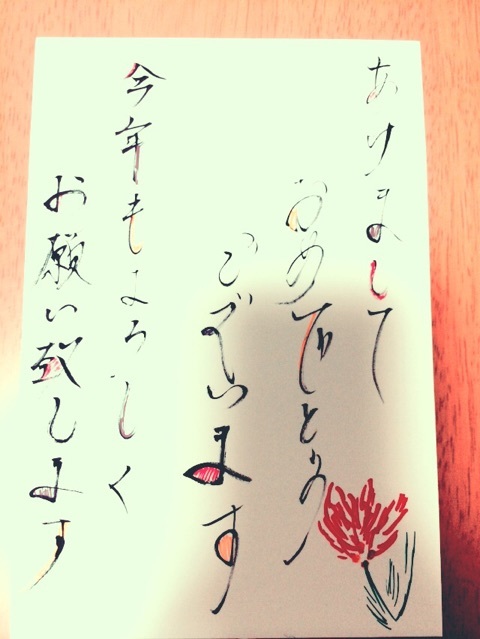 あけまして
おめでとう
ございます
今年もよろしく
お願い致します